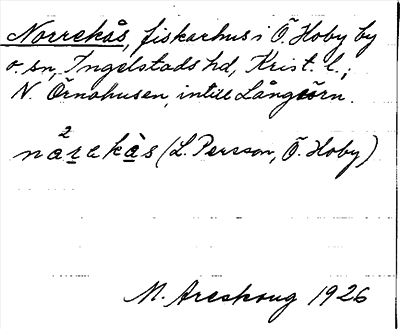 Norrekås, fiskarhus i Ö. Hoby by
o. sn, Ingelstads hd, Krist. l.;
N. Örnahusen, intill Långörn.
nårekås (L. Persson, Ö. Hoby)
M. Areskoug 1926